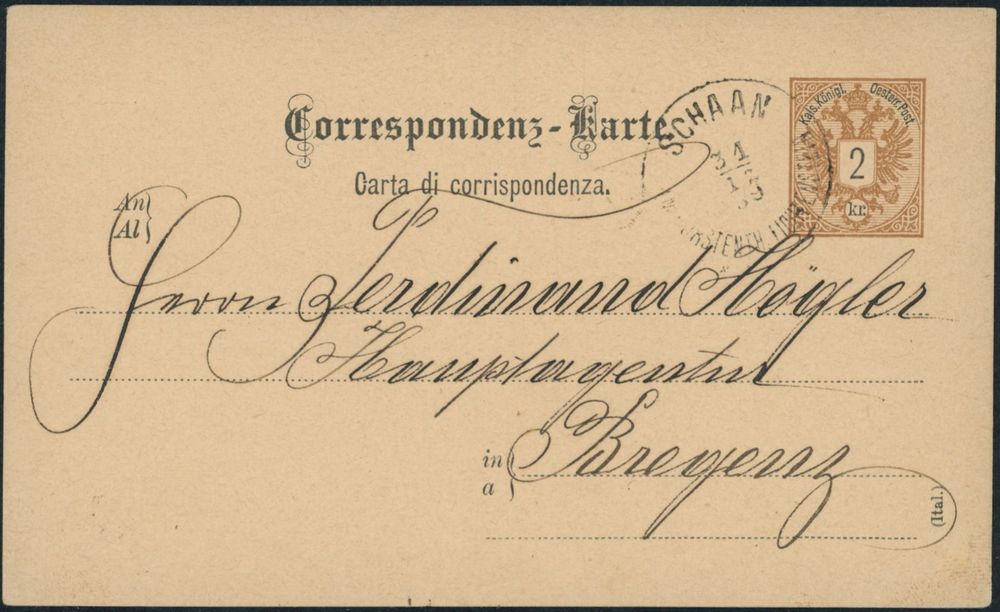 Correspondenz-Karte.
Carta di corrispondenza.
SCHAAN
FÜRSTENTH. LIECHTENSTEIN
Kais. Königl. Oesterr. Post
2
kr.
An
Al
Herrn Ferdinand Högler
Hauptagentur
in
a
Bregenz
(Ital.)